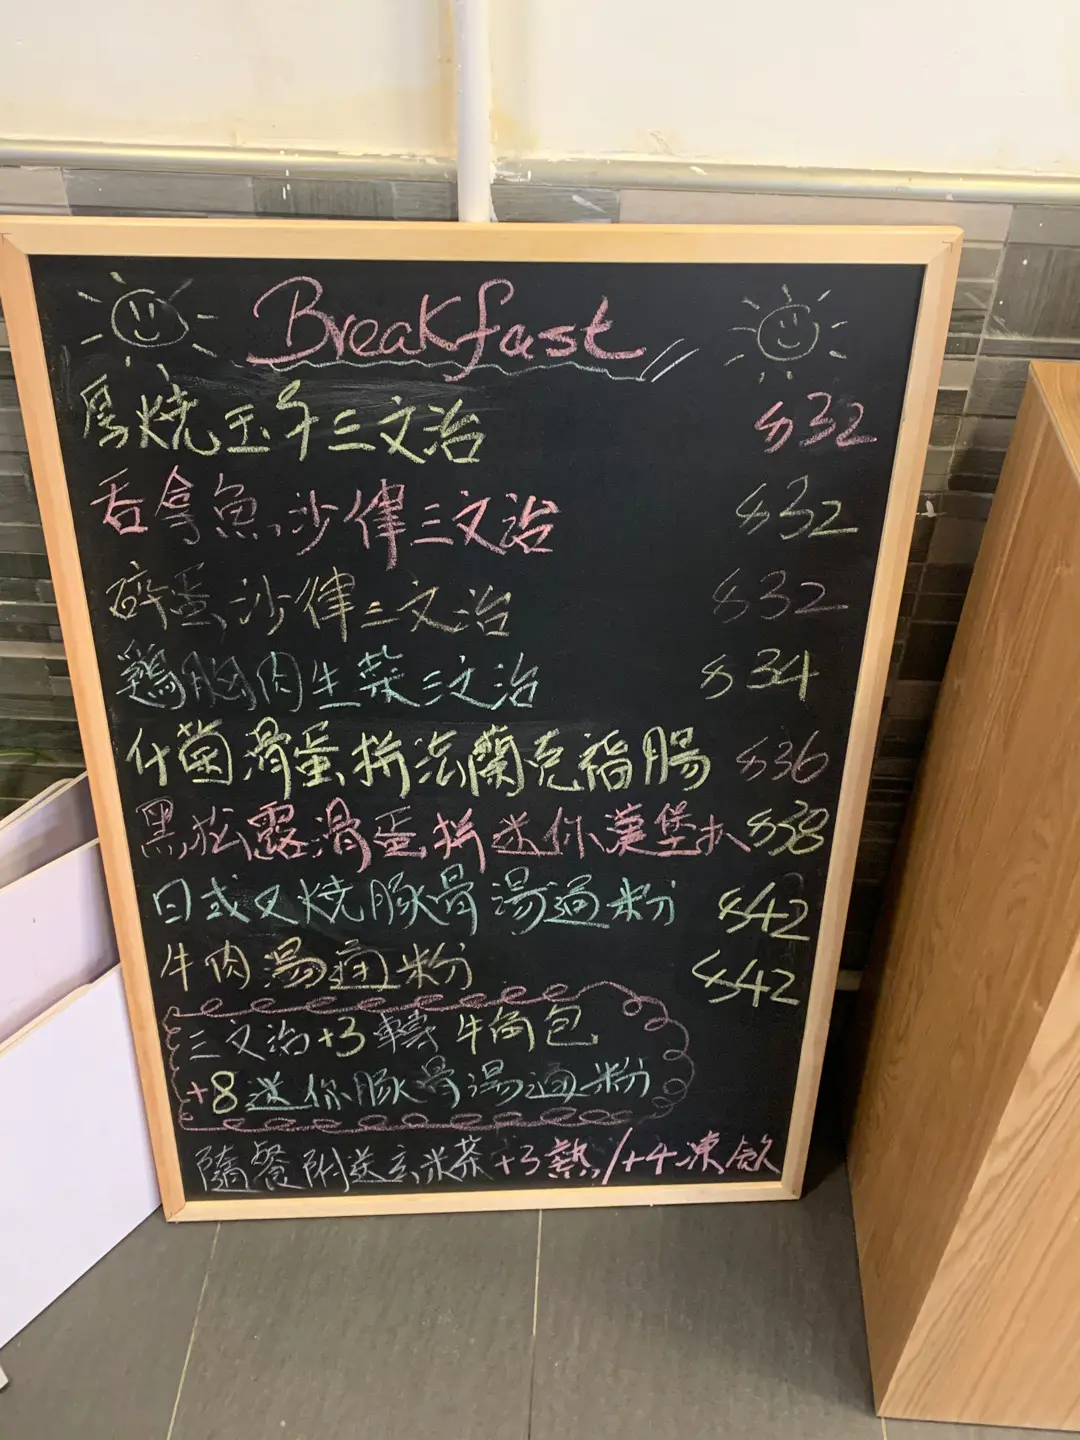 Breakfast
厚燒玉子三文治 $32
吞拿魚沙律三文治 $32
碎蛋沙律三文治 $32
鷄胸肉生菜三文治 $34
什菌滑蛋拼法蘭克福腸 $36
黑松露滑蛋拼迷你漢堡扒 $38
日式叉燒豚骨湯通粉 $42
牛肉湯通粉 $42
三文治+3轉牛角包
+8送你豚骨湯通粉
隨餐附送玄米茶+3熱/+4凍飲